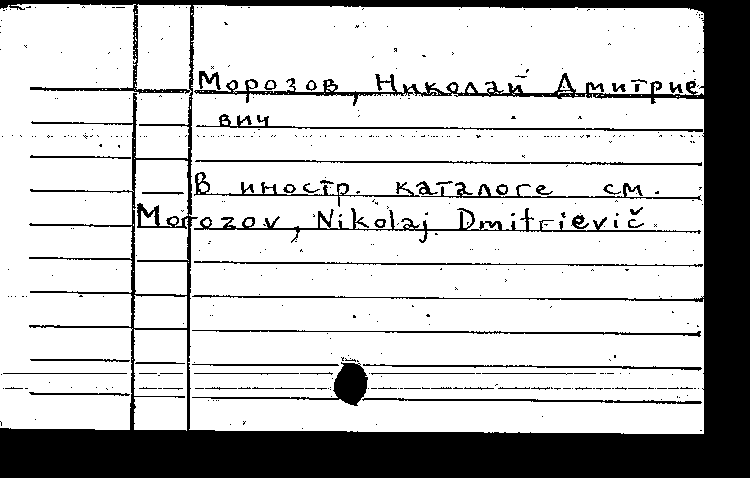 Морозов, Николай Дмитрие-
вич
В иностр. каталоге см.
Morozov, Nikolaj Dmitrievič